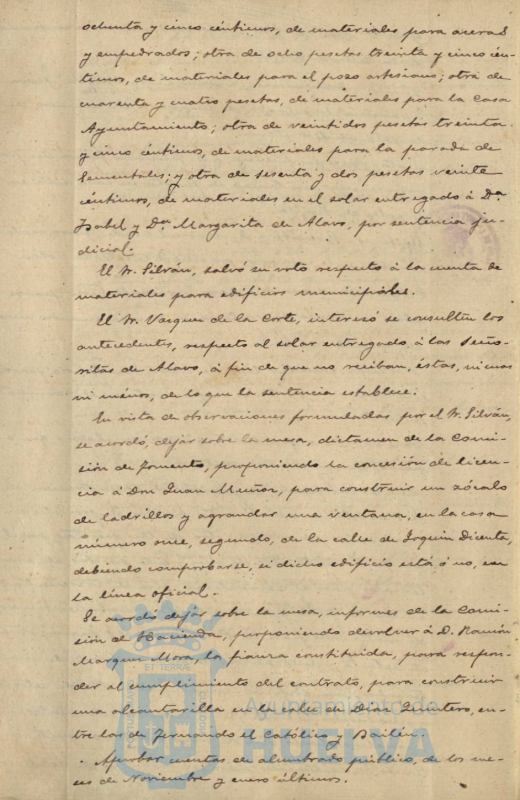 ochenta y cinco céntimos, de materiales para aceras
y empedrados; otra de ocho pesetas treinta y cinco cén-
timos, de materiales para el pozo artesiano; otra de
cuarenta y cuatro pesetas, de materiales para la Casa
Ayuntamiento; otra de veintidos pesetas treinta
y cinco céntimos, de materiales para la parada de
Sementales; y otra de sesenta y dos pesetas veinte
céntimos, de materiales en el solar entregado á Dª
Isabel y Dª Margarita de Alavo, por sentencia ju-
dicial.
El Sr. Silván, salvó su voto respecto á la cuenta de
materiales para edificios municipales.
El Sr. Vazquez de la Corte, interesó se consulten los
antecedentes, respecto al solar entregado á las Seño-
ritas de Alavo, á fin de que no reciban, éstas, ni mas
ni ménos, de lo que la sentencia establece.
En vista de observaciones formuladas por el Sr. Silván,
se acordó dejar sobre la mesa, dictamen de la Comi-
sión de Fomento, proponiendo la concesión de licen-
cia á Don Juan Muñoz, para construir un zócalo
de ladrillos y agrandar una ventana, en la casa
número once, segundo, de la calle de Joaquin Dicenta,
debiendo comprobarse, si dicho edificio está ó no, en
la línea oficial.
Se acordó dejar sobre la mesa, informes de la Comi-
sión de Hacienda, proponiendo devolver á D. Ramón
Marquez Mora, la fianza constituida, para respon-
der al cumplimiento del contrato, para construir
una alcantarilla en la calle de Diaz Quintero, en-
tre las de Fernando el Católico y Bailén.
Aprobar cuentas de alumbrado público, de los me-
ses de Noviembre y enero últimos.
Ayuntamiento de
HUELVA